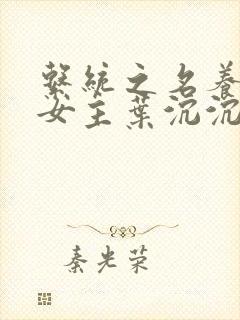 繫統之名養
女主葉沉沉
秦光荣